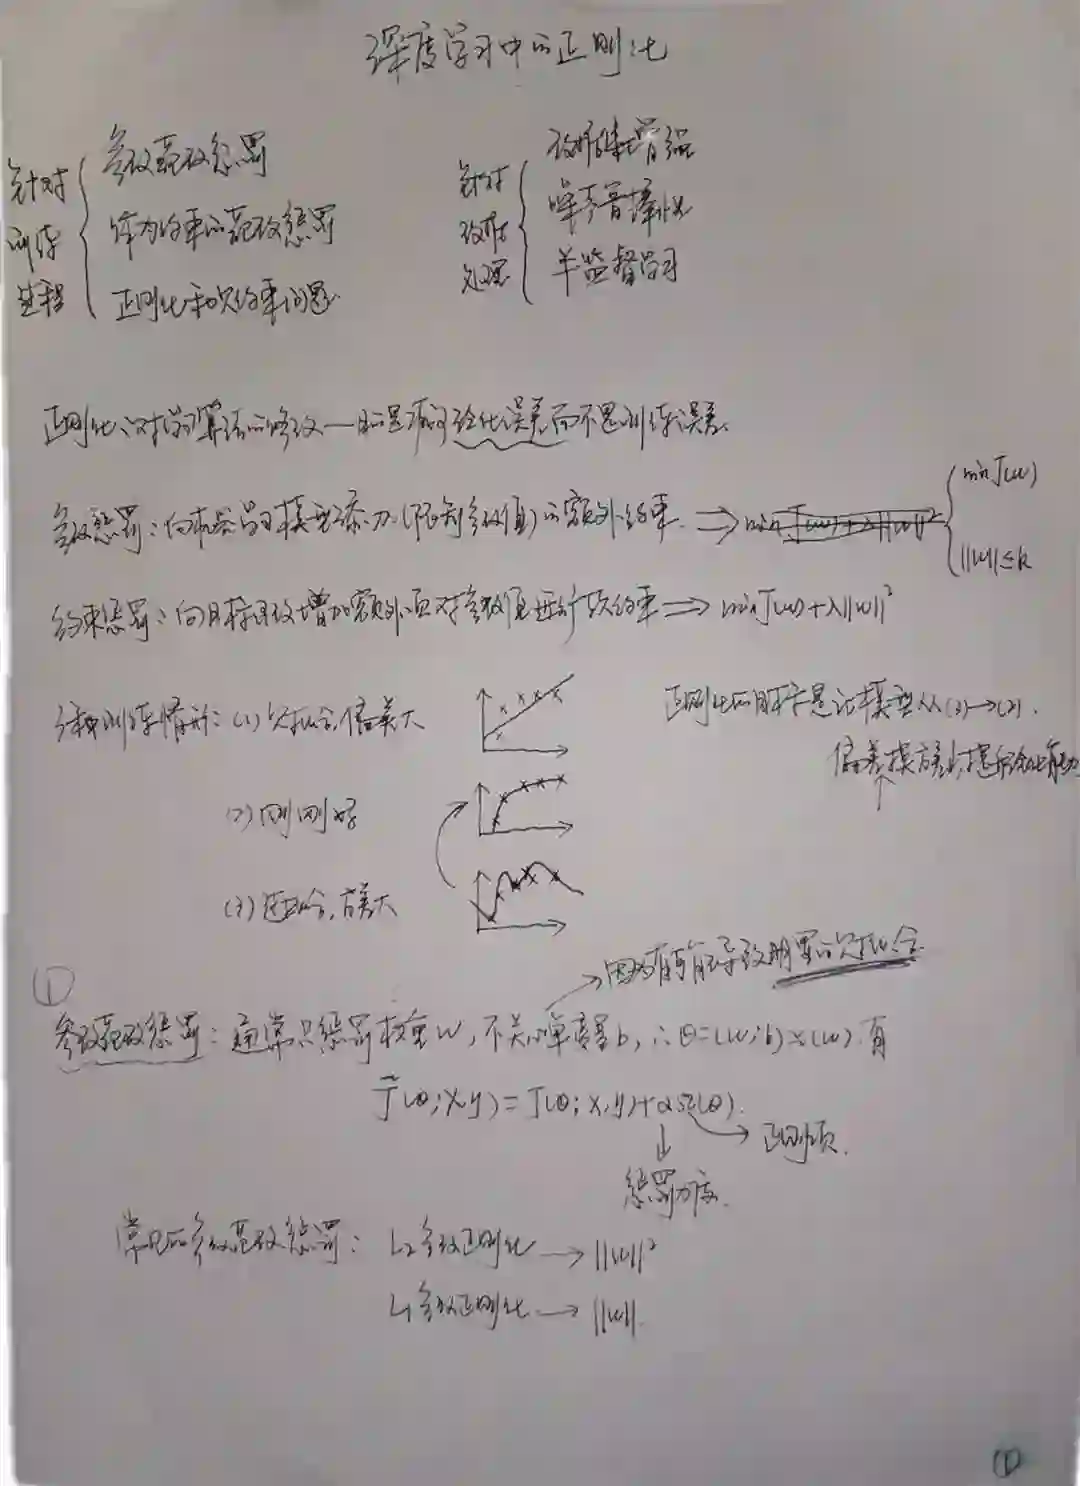 深度学习中的正则化
针对训练过程
参数范数惩罚
作为约束的范数惩罚
正则化和欠约束问题
针对数据处理
数据集增强
噪声音
半监督学习
正则化:对学习算法的修改——旨在减少泛化误差而不是训练误差
参数惩罚:向机器学习模型添加(限制参数值)的额外约束 ⇒
min J(w)
||w||≤k
约束惩罚:向目标函数增加额外项对参数值进行软约束 ⇒ min J(w)+λ||w||²
3种训练情形:(1)欠拟合,偏差大
正则化的目标是让模型从(3)→(2).
偏差换方差,提高泛化能力
(2)刚刚好
(3)过拟合,方差大
①
→因为有可能导致明显的欠拟合.
参数范数惩罚:通常只惩罚权重w,不关心偏置b,∴θ=(w;b)≈(w).有
J̃(θ;X,y)=J(θ;X,y)+αΩ(θ).
→正则项.
惩罚力度.
常见的参数范数惩罚:L₂参数正则化→||w||²
L₁参数正则化→||w||.
①